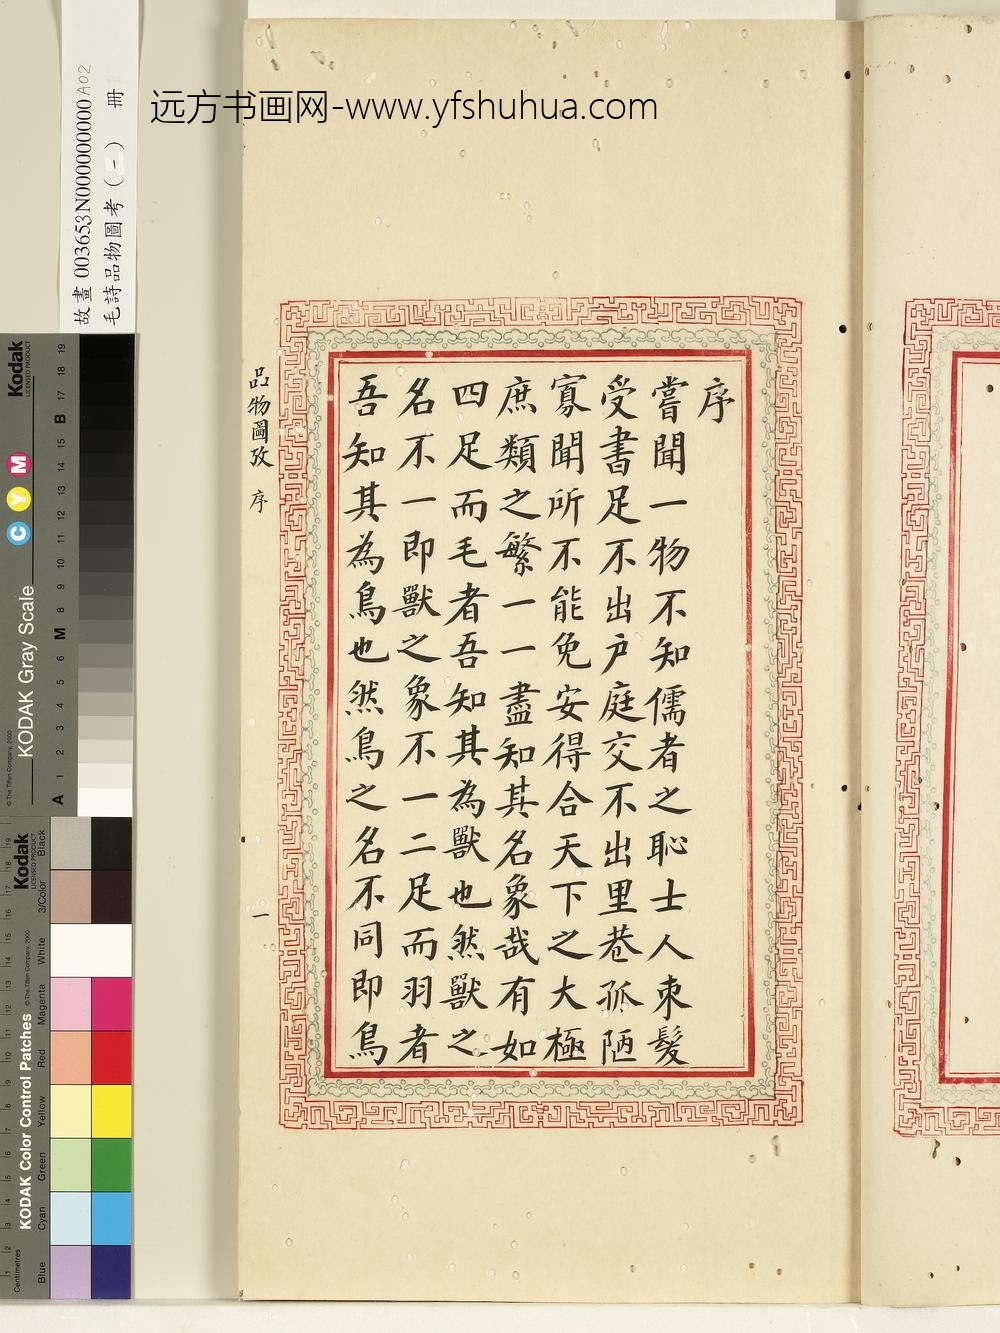 远方书画网-www.yfshuhua.com
故畫003653N000000000A02
毛詩品物圖考（一） 冊
序
嘗聞一物不知儒者之恥士人束髮
受書足不出戶庭交不出里巷孤陋
寡聞所不能免安得合天下之大極
庶類之繁一一盡知其名象哉有如
四足而毛者吾知其為獸也然獸之
名不一即獸之象不一二足而羽者
吾知其為鳥也然鳥之名不同即鳥
品物圖攷 序
一
Kodak
LICENSED PRODUCT
C Y M
KODAK Gray Scale
© The Tiffen Company, 2000
A 1 2 3 4 5 6 M 8 9 10 11 12 13 14 15 B 17 18 19
Kodak
LICENSED PRODUCT
KODAK Color Control Patches
© The Tiffen Company, 2000
Centimetres
1 2 3 4 5 6 7 8 9 10 11 12 13 14 15 16 17 18 19
Blue Cyan Green Yellow Red Magenta White 3/Color Black